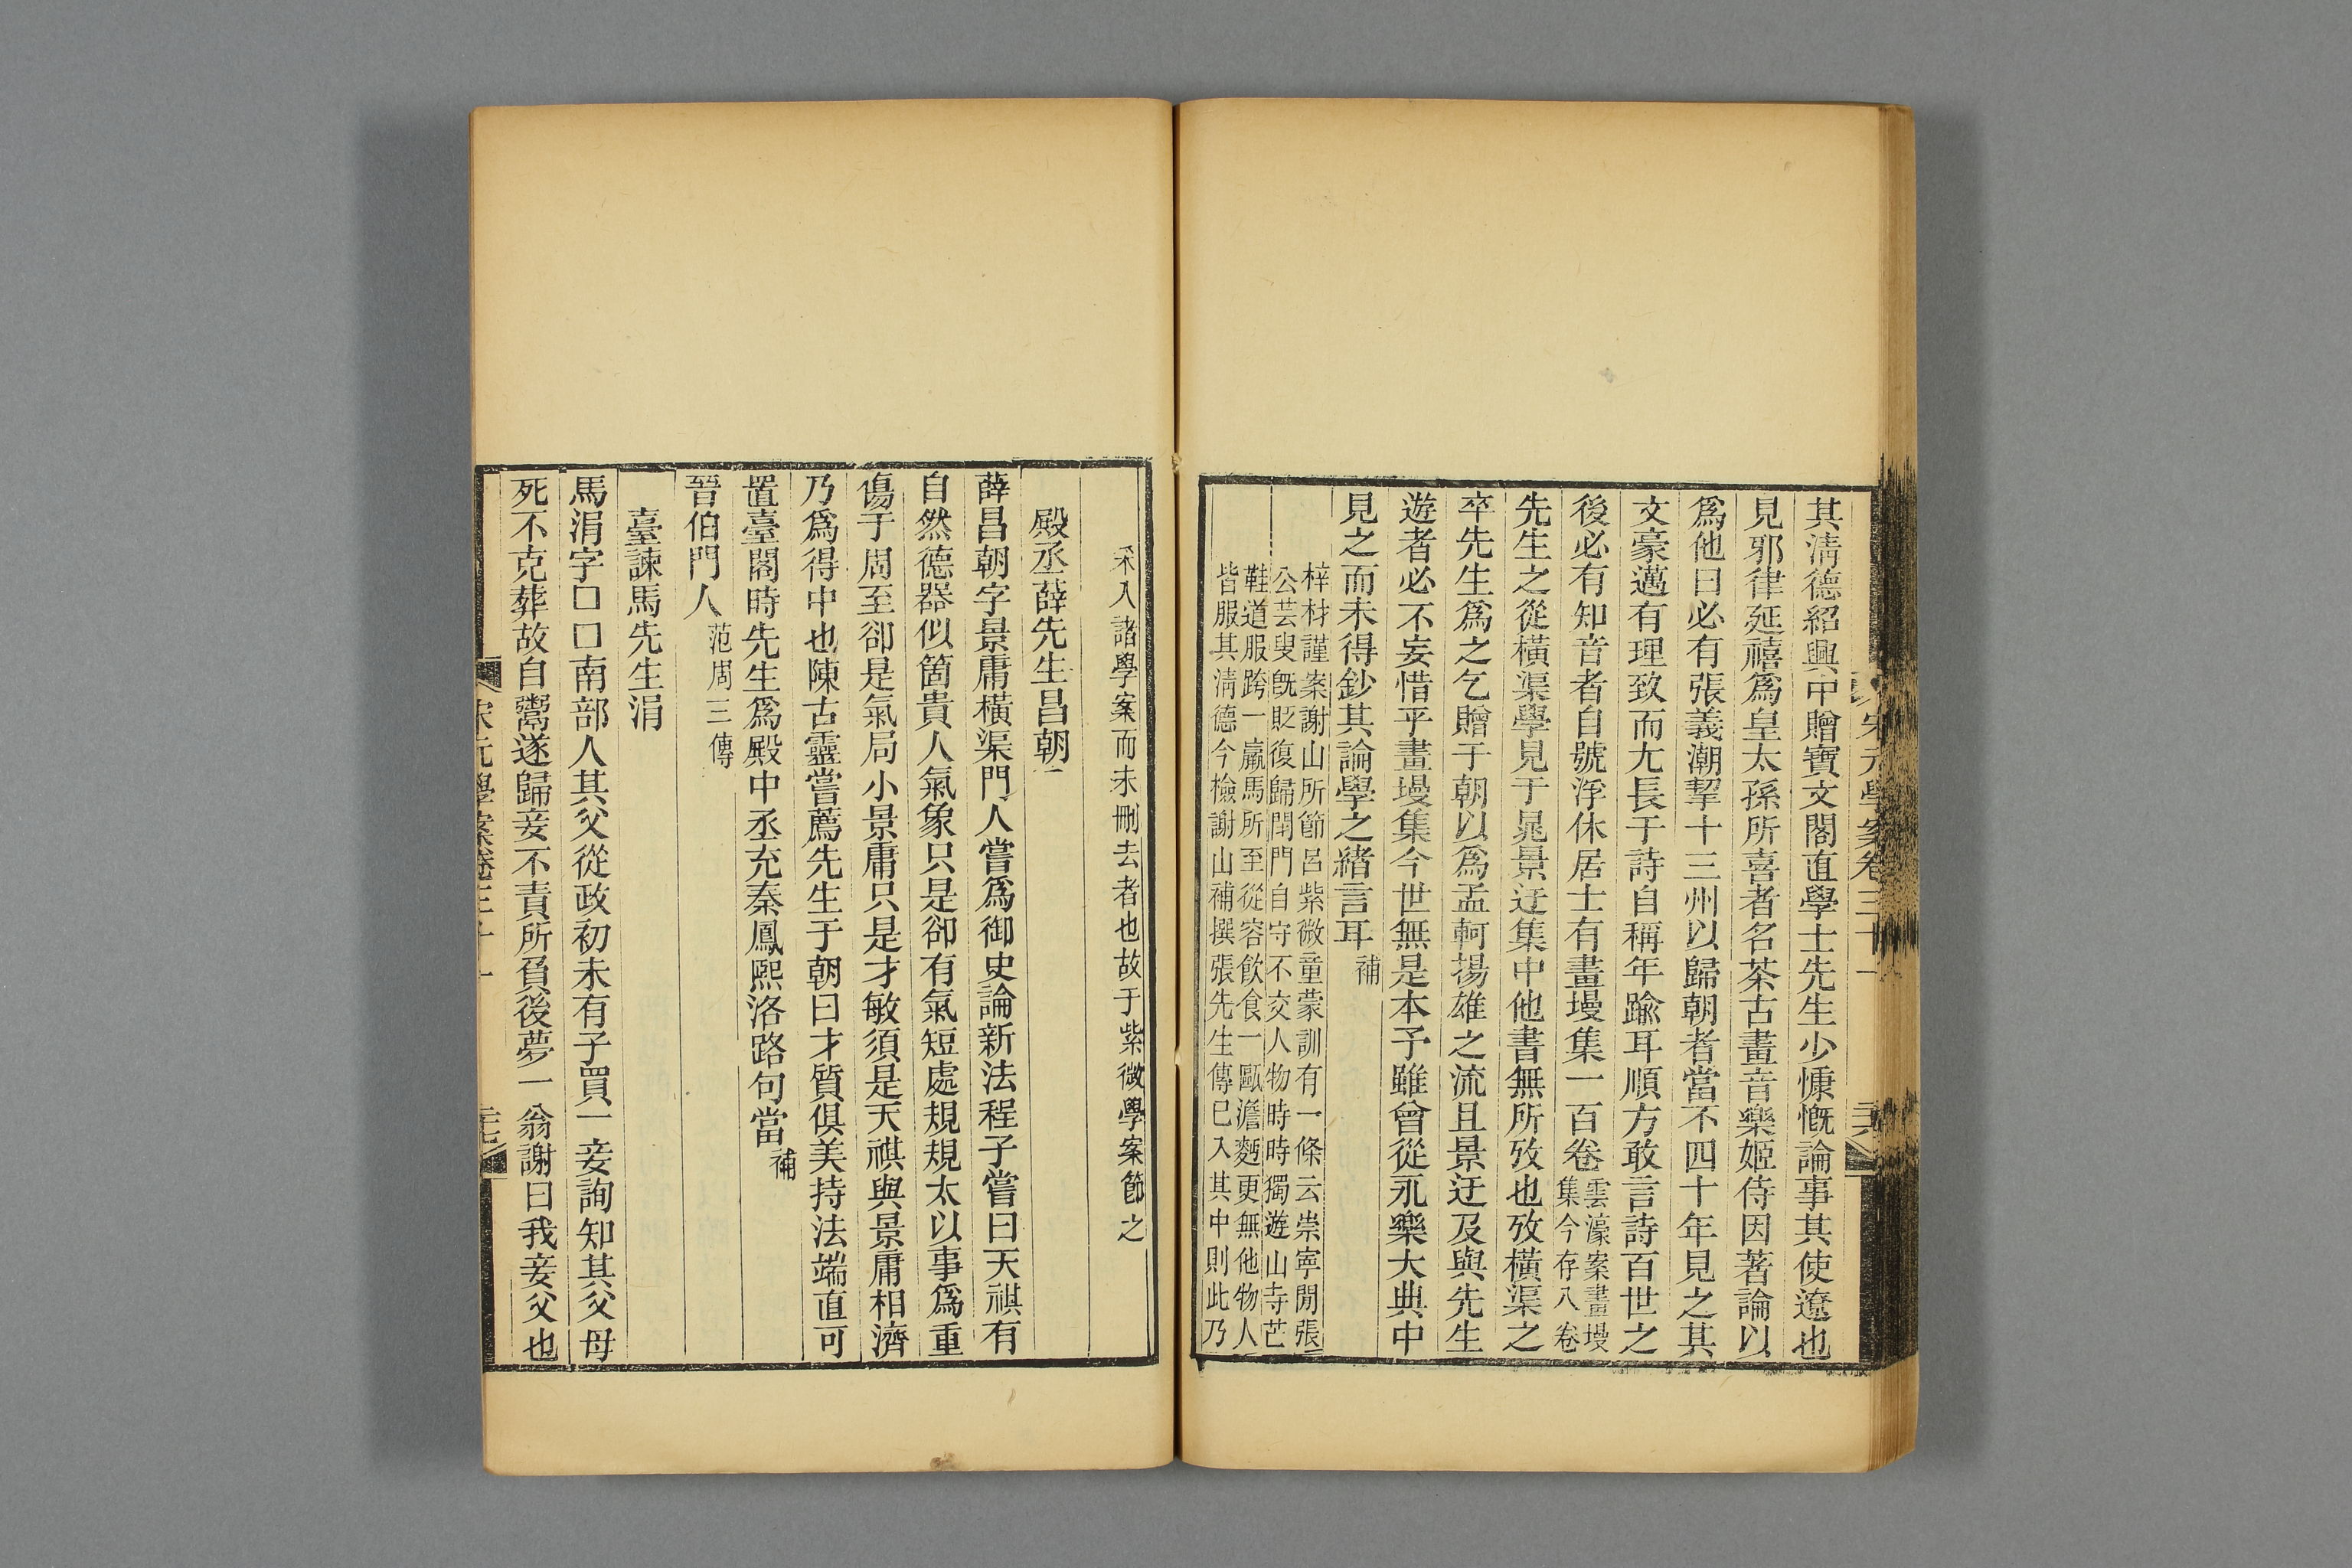 宋元學案卷三十一
其淸德紹興中贈寶文閣直學士先生少慷慨論事其使遼也
見邪律延禧爲皇太孫所喜者名茶古畫音樂姬侍因著論以
爲他日必有張義潮挈十三州以歸朝者當不四十年見之其
文豪邁有理致而尤長于詩自稱年踰耳順方敢言詩百世之
後必有知音者自號浮休居士有畫墁集一百卷雲濠案畫墁集今存八卷
先生之從橫渠學見于晁景迂集中他書無所攷也攷橫渠之
卒先生爲之乞贈于朝以爲孟軻揚雄之流且景迂及與先生
遊者必不妄惜乎畫墁集今世無是本予雖曾從永樂大典中
見之而未得鈔其論學之緒言耳補
梓材謹案謝山所節呂紫微童蒙訓有一條云崇寧閒張
公芸叟旣貶復歸閉門自守不交人物時時獨遊山寺芒
鞋道服跨一羸馬所至從容飮食一甌澹麪更無他物人
皆服其淸德今檢謝山補撰張先生傳已入其中則此乃
采入諸學案而未刪去者也故于紫微學案節之
殿丞薛先生昌朝
薛昌朝字景庸橫渠門人嘗爲御史論新法程子嘗曰天祺有
自然德器似箇貴人氣象只是卻有氣短處規規太以事爲重
傷于周至卻是氣局小景庸只是才敏須是天祺與景庸相濟
乃爲得中也陳古靈嘗薦先生于朝曰才質俱美持法端直可
置臺閣時先生爲殿中丞充秦鳳熙洛路句當補
晉伯門人范周三傳
臺諫馬先生涓
馬涓字□□南部人其父從政初未有子買一妾詢知其父母
死不克葬故自鬻遂歸妾不責所負後夢一翁謝曰我妾父也
宋元學案卷三十一